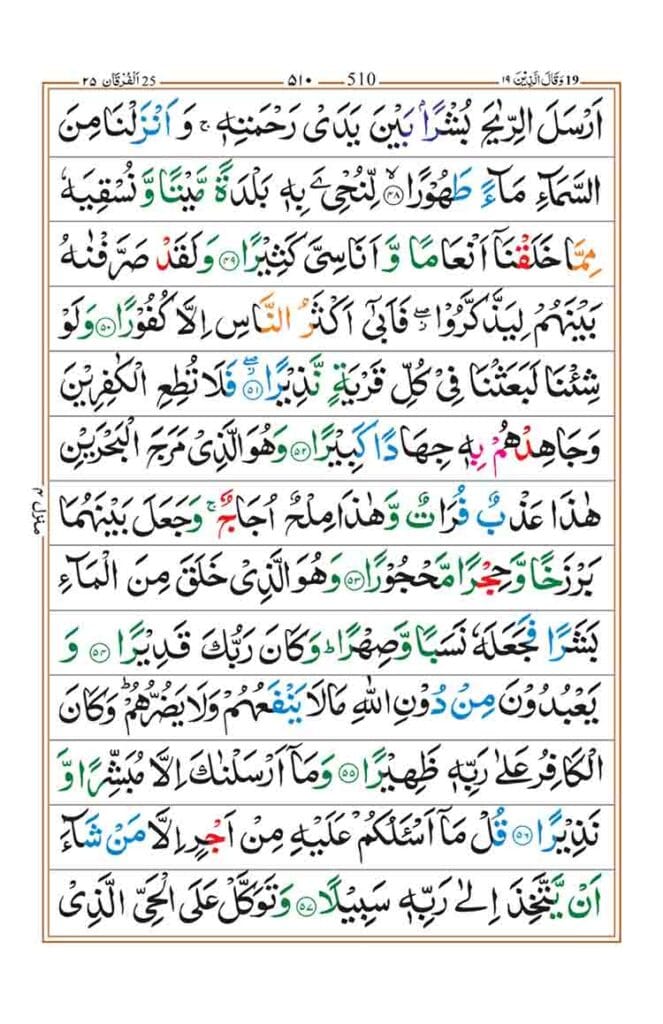 ١٩ وَقَالَ الَّذِيْنَ 19 510 ٥١٠ 25 اَلْفُرْقَان ٢٥
اَرْسَلَ الرِّيٰحَ بُشْرًاۢ بَيْنَ يَدَىْ رَحْمَتِهٖ ۚ وَ اَنْزَلْنَا مِنَ
السَّمَآءِ مَآءً طَهُوْرًا ۙ﴿٤٨﴾ لِّنُحْیِۦَ بِهٖ بَلْدَةً مَّيْتًا وَّ نُسْقِيَهٗ
مِمَّا خَلَقْنَاۤ اَنْعَامًا وَّ اَنَاسِىَّ كَثِيْرًا ﴿٤٩﴾ وَلَقَدْ صَرَّفْنٰهُ
بَيْنَهُمْ لِيَذَّكَّرُوْا ۖ ز فَاَبٰٓى اَكْثَرُ النَّاسِ اِلَّا كُفُوْرًا ﴿٥٠﴾ وَلَوْ
شِئْنَا لَبَعَثْنَا فِىْ كُلِّ قَرْيَةٍ نَّذِيْرًا ۖ ز ﴿٥١﴾ فَلَا تُطِعِ الْكٰفِرِيْنَ
وَجَاهِدْهُمْ بِهٖ جِهَادًا كَبِيْرًا ﴿٥٢﴾ وَهُوَ الَّذِىْ مَرَجَ الْبَحْرَيْنِ
هٰذَا عَذْبٌ فُرَاتٌ وَّهٰذَا مِلْحٌ اُجَاجٌ ۚ وَجَعَلَ بَيْنَهُمَا
بَرْزَخًا وَّحِجْرًا مَّحْجُوْرًا ﴿٥٣﴾ وَهُوَ الَّذِىْ خَلَقَ مِنَ الْمَآءِ
بَشَرًا فَجَعَلَهٗ نَسَبًا وَّصِهْرًا ؕ وَكَانَ رَبُّكَ قَدِيْرًا ﴿٥٤﴾ وَ
يَعْبُدُوْنَ مِنْ دُوْنِ اللّٰهِ مَا لَا يَنْفَعُهُمْ وَلَا يَضُرُّهُمْ ؕ وَكَانَ
الْكَافِرُ عَلٰى رَبِّهٖ ظَهِيْرًا ﴿٥٥﴾ وَمَاۤ اَرْسَلْنٰكَ اِلَّا مُبَشِّرًا وَّ
نَذِيْرًا ﴿٥٦﴾ قُلْ مَاۤ اَسْـَٔلُكُمْ عَلَيْهِ مِنْ اَجْرٍ اِلَّا مَنْ شَآءَ
اَنْ يَّتَّخِذَ اِلٰى رَبِّهٖ سَبِيْلًا ﴿٥٧﴾ وَتَوَكَّلْ عَلَى الْحَىِّ الَّذِىْ
منزل ٤